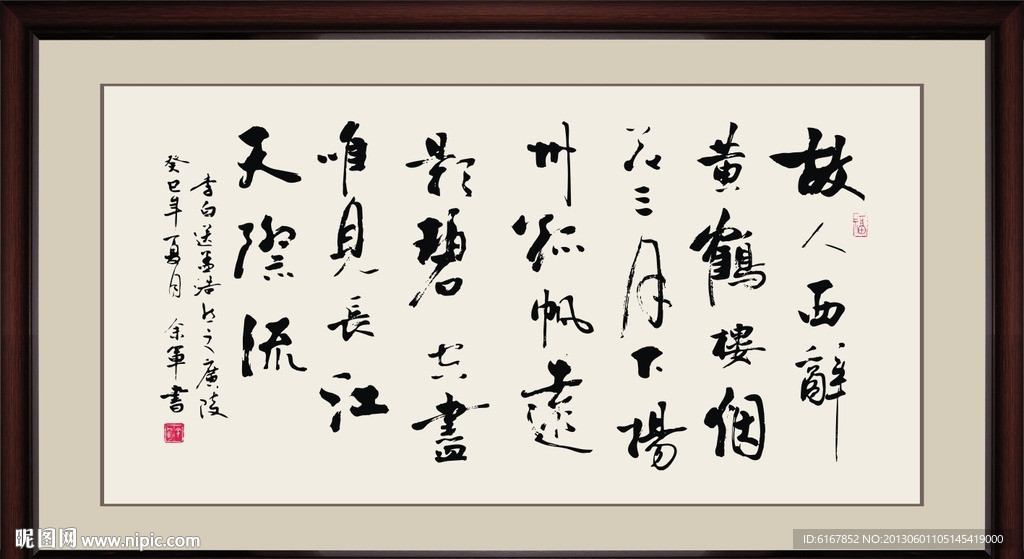 故人西辭
黄鶴樓烟
花三月下揚
州孤帆遠
影碧空盡
唯見長江
天際流
李白送孟浩然之廣陵
癸巳年夏月 余軍書
昵图网 www.nipic.com
ID:6167852 NO:20130601105145419000